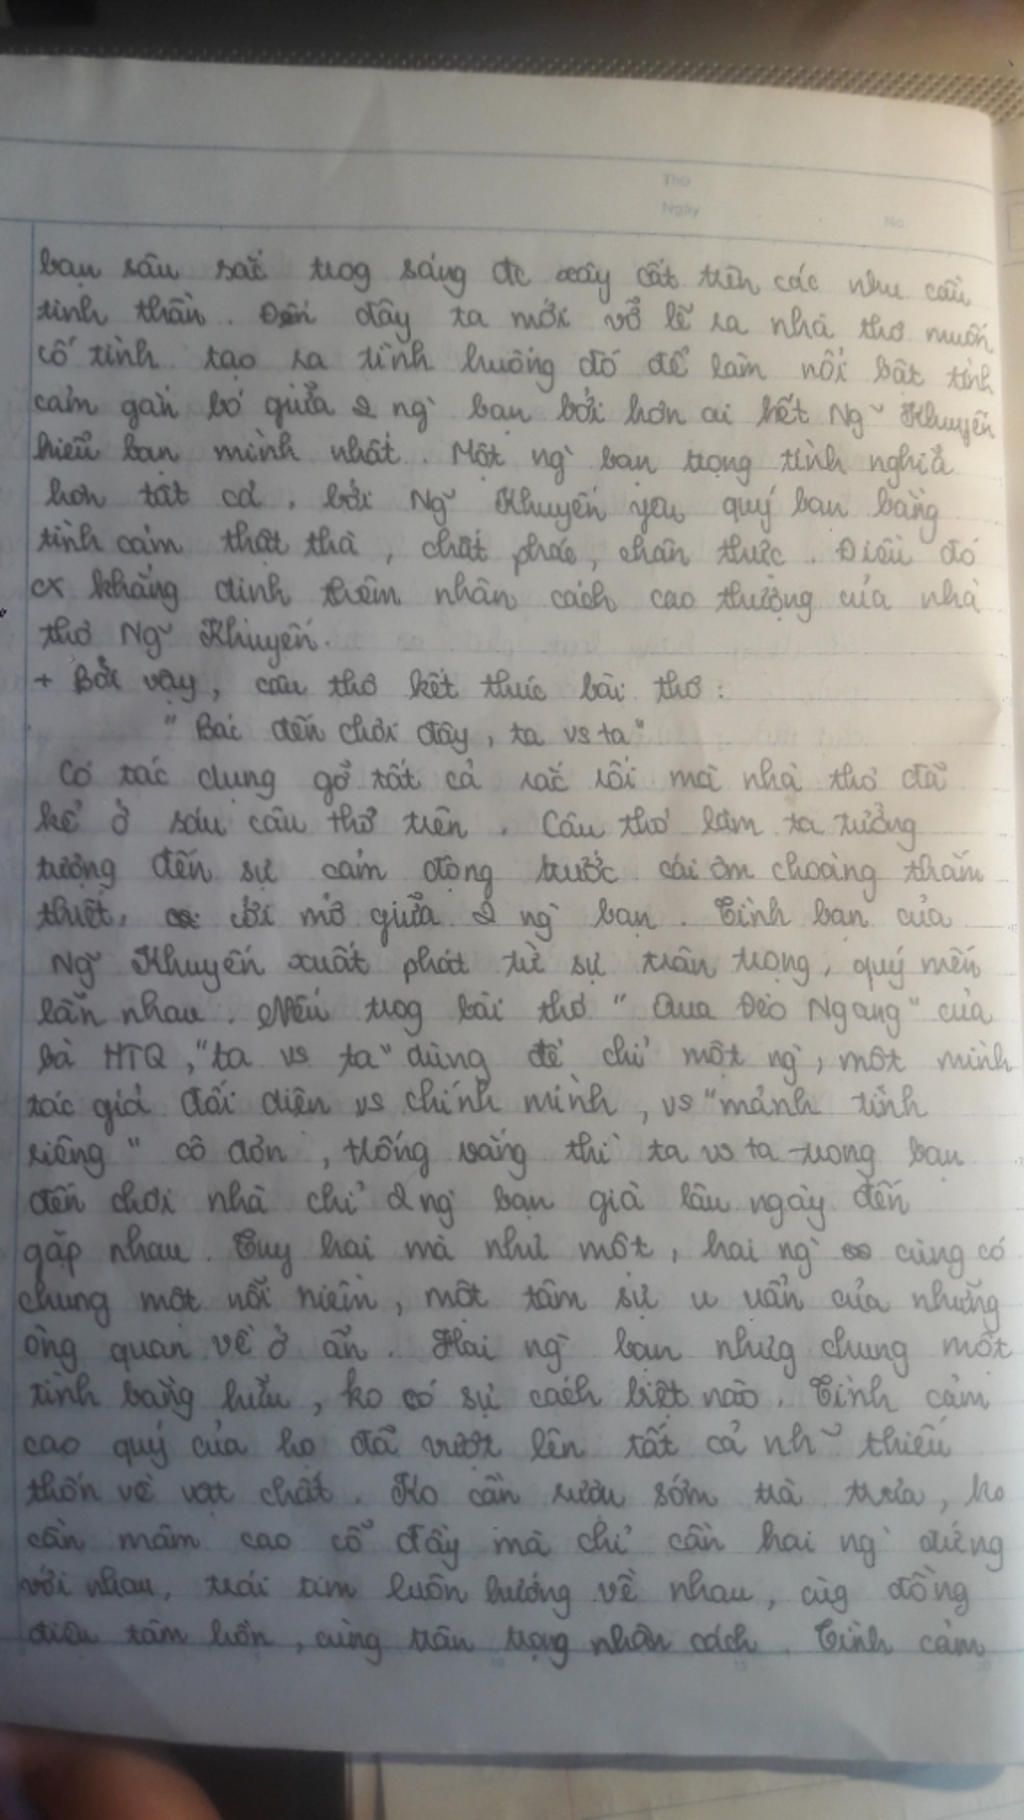 Thứ
Ngày
No.
bạn sâu sắc trog sáng đc xây cất trên các nhu cầu
tinh thần. Đến đây ta mới vỡ lẽ ra nhà thơ muốn
cố tình tạo ra tình huống đó để làm nổi bật tình
cảm gắn bó giữa 2 ng` bạn bởi hơn ai hết Ng~ Khuyến
hiểu bạn mình nhất. Một ng` bạn trọng tình nghĩa
hơn tất cả. bởi Ng~ Khuyến yêu quý bạn bằng
tình cảm thật thà, chất phác, chân thực. Điều đó
cx khẳng định thêm nhân cách cao thượng của nhà
thơ Ng~ Khuyến.
+ Bởi vậy, câu thơ kết thúc bài thơ:
" Bác đến chơi đây, ta vs ta"
Có tác dụng gỡ tất cả rắc rối mà nhà thơ đã
kể ở sáu câu thơ trên. Câu thơ làm ta tưởng
tượng đến sự cảm động trước cái ôm choàng thắm
thiết, cởi mở giữa 2 ng` bạn. Tình bạn của
Ng~ Khuyến xuất phát từ sự trân trọng, quý mến
lẫn nhau. Nếu trog bài thơ " Qua Đèo Ngang" của
bà HTQ, "ta vs ta" dùng để chỉ một ng`, một mình
tác giả đối diện vs chính mình, vs "mảnh tình
riêng" cô đơn, trống vắng thì ta vs ta trong bạn
đến chơi nhà chỉ 2 ng` bạn già lâu ngày đến
gặp nhau. Tuy hai mà như một, hai ng` cùng có
chung một nỗi niềm, một tâm sự u uẩn của những
ông quan về ở ẩn. Hai ng` bạn nhưg chung một
tình bằng hữu, ko có sự cách biệt nào. Tình cảm
cao quý của họ đã vượt lên tất cả nh~ thiếu
thốn về vật chất. Ko cần rượu sớm trà trưa, ko
cần mâm cao cỗ đầy mà chỉ cần hai ng` đứng
với nhau, trái tim luôn hướng về nhau, cùg đồng
điệu tâm hồn, cùng trân trọng nhân cách. Tình cảm